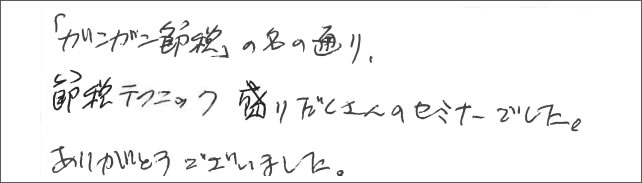 「ガンガン節税」の名の通り、
節税テクニック盛りだくさんのセミナーでした。
ありがとうございました。